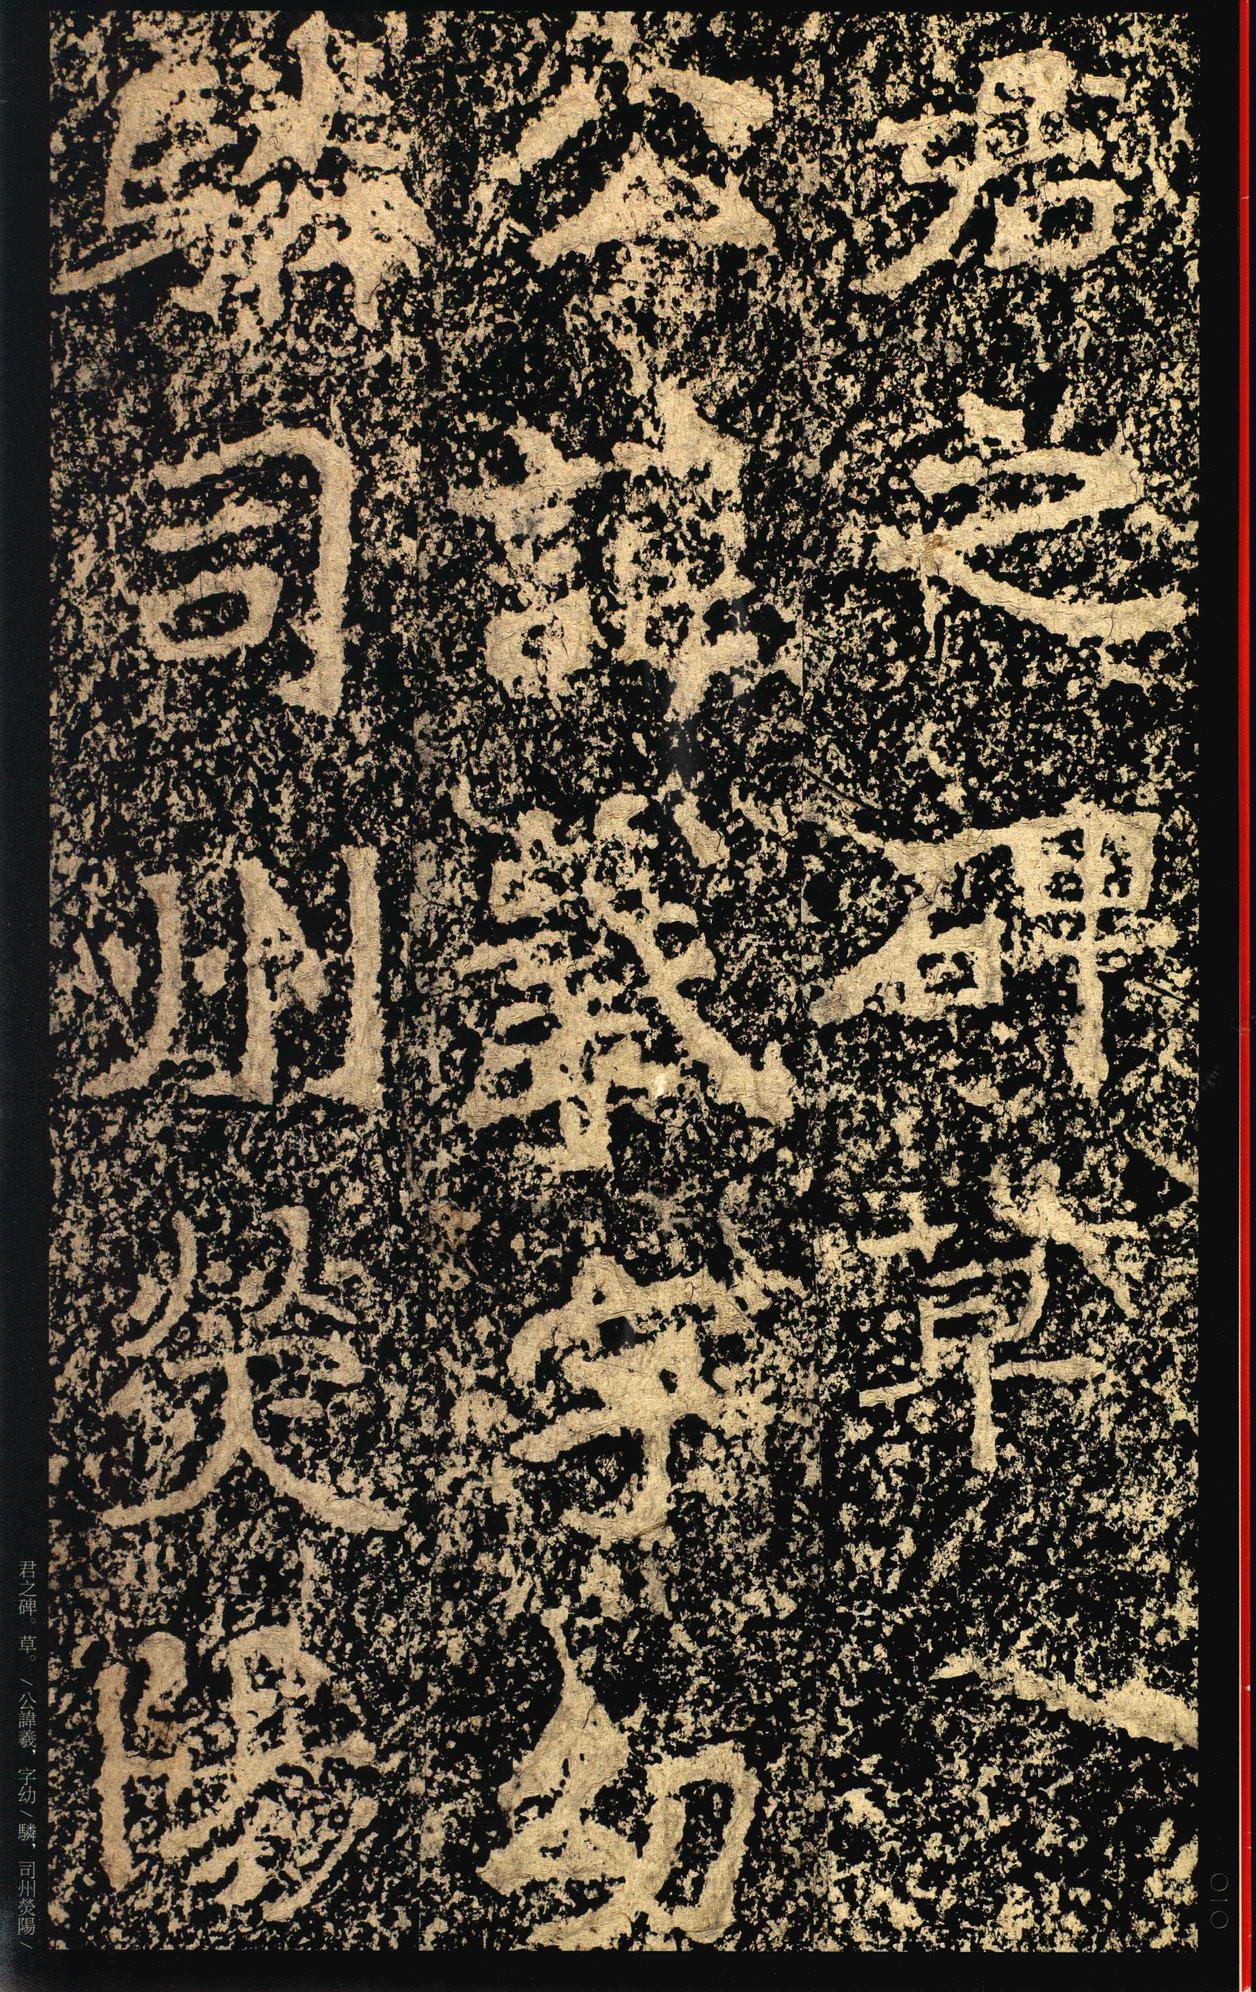 君之碑草
公諱羲字幼
驎司州熒陽
君之碑。草。/公諱羲，字幼/驎，司州熒陽/
〇一〇